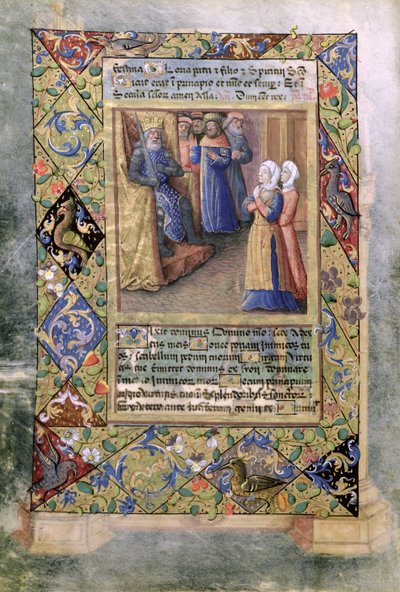 festina Gloria patri et filio et Spiritui Sco
Sicut erat i principio et nuc et semper. Et
Secula amen alla. Dum esset rex
Dixit dominus Domino meo: sede a dex
tris meis Donec ponam inimicos tu
os: scabellum pedum tuorum Virgam virtu
tis tue emittet dominus ex syon: dominare
in medio inimicorum tuor Tecum principium
in die virtutis tue in Splendoribus Sanctorum
ante luciferum genui te